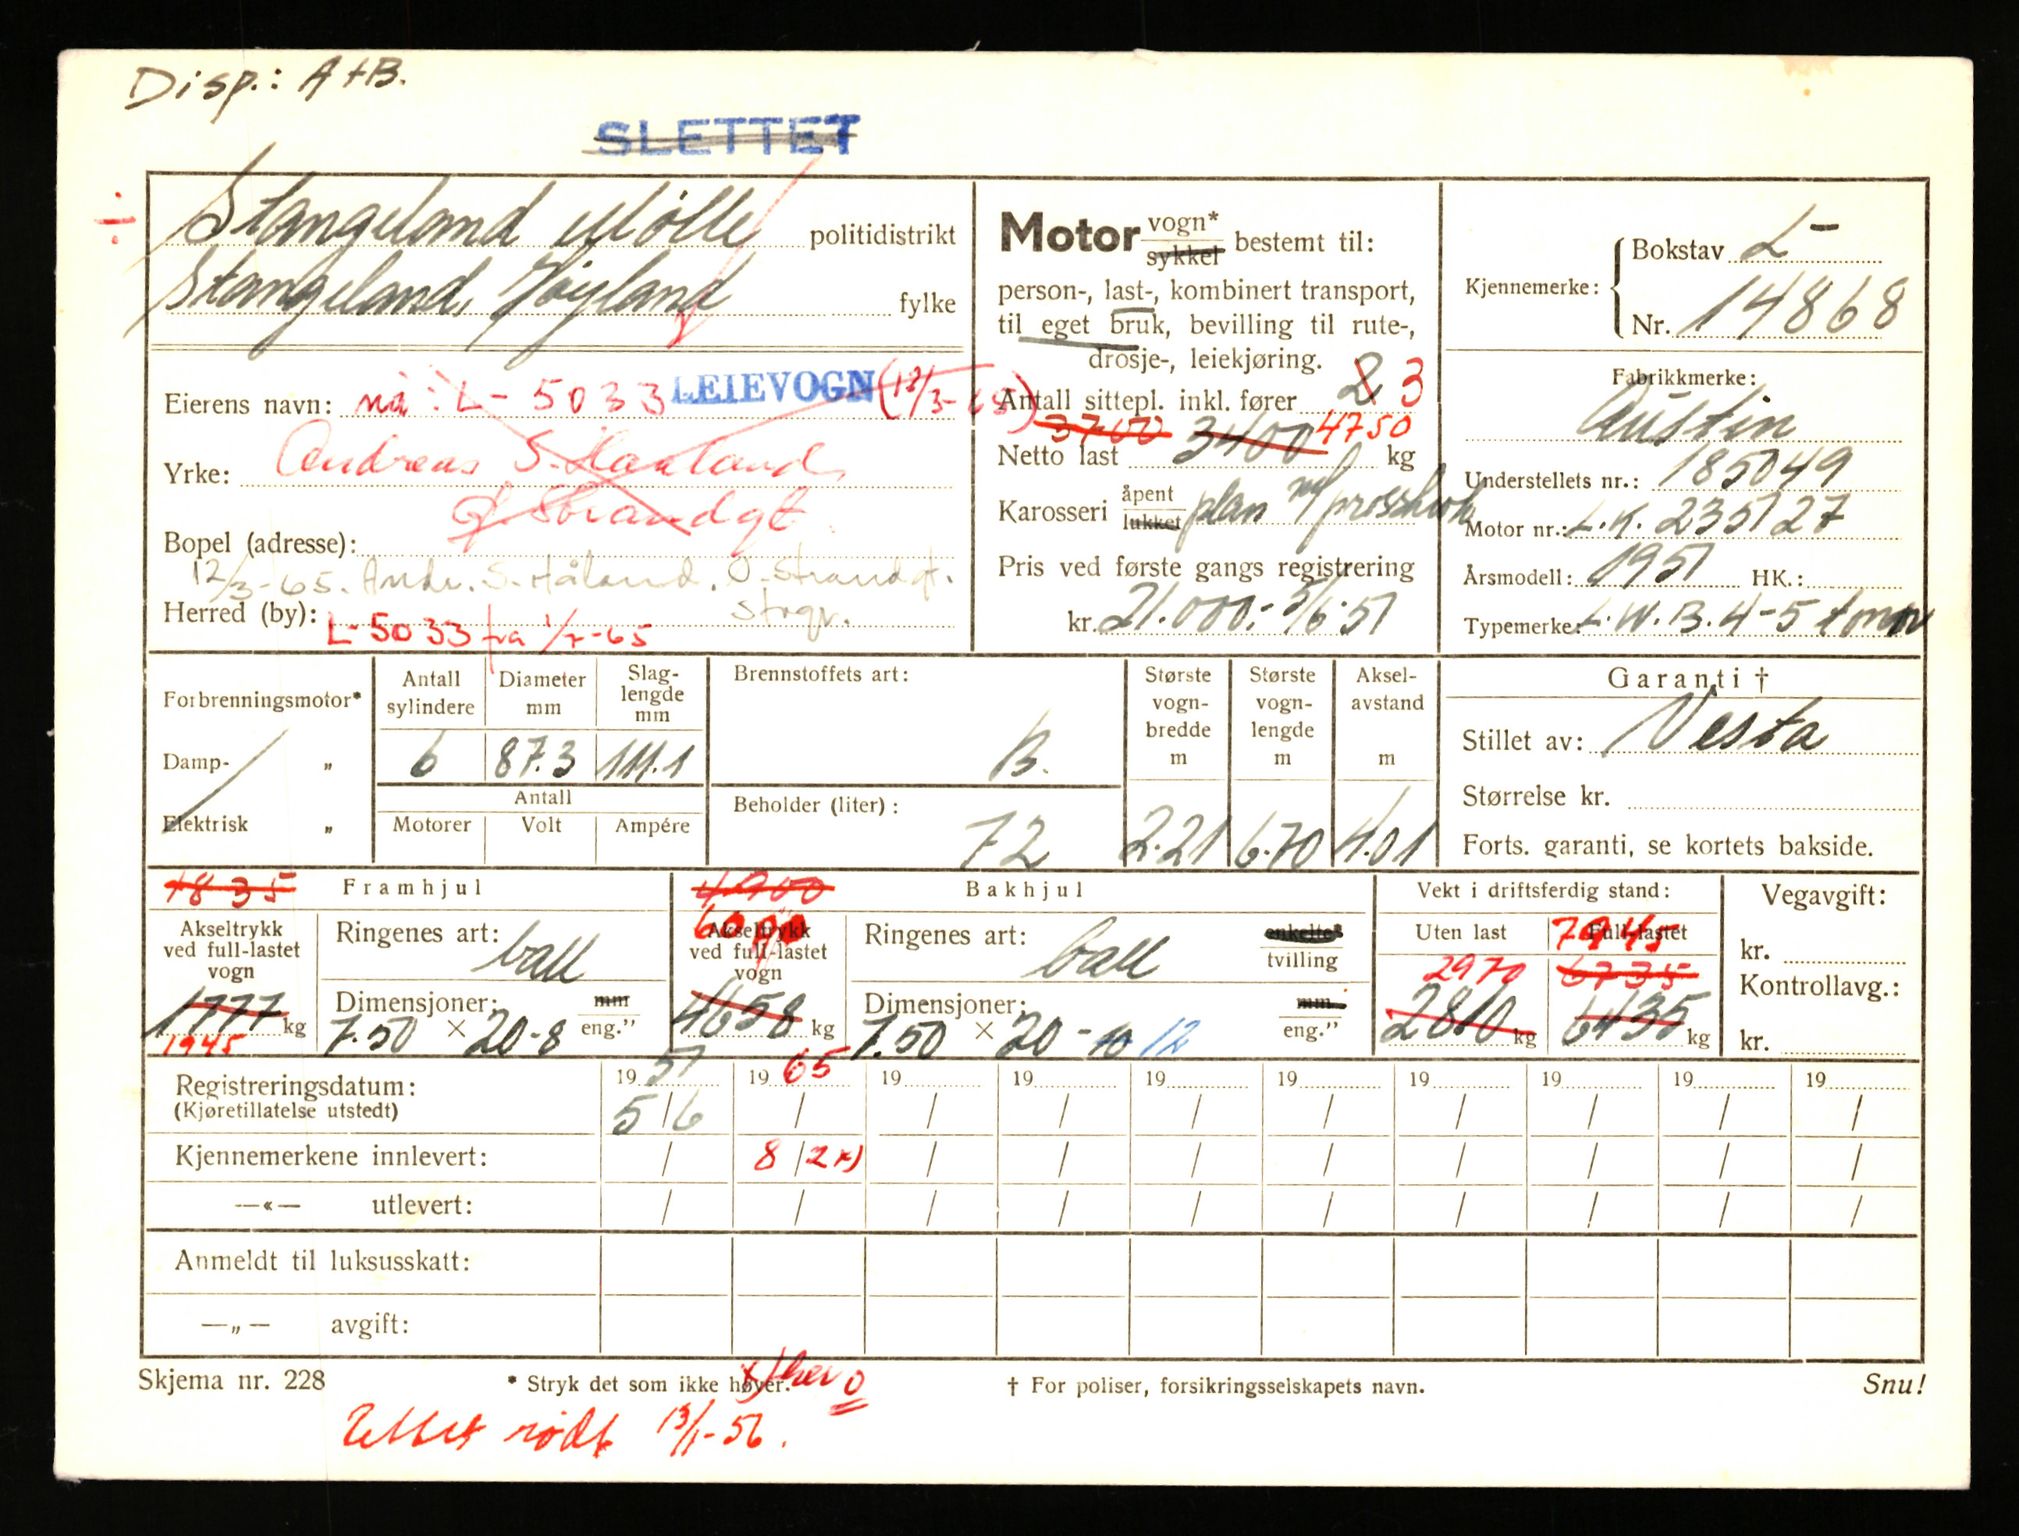 Disp.: A+B.
SLETTET
÷
Stangeland Mølle politidistrikt
Stangeland, Høyland fylke
Eierens navn: nå: L-5033 LEIEVOGN (12/3-65)
Yrke: Andreas S. Haaland
Ø. Strandgt.
Bopel (adresse):
12/3-65. Andr. S. Håland. Ø. Strandgt.
Herred (by): Stvgr.
L-5033 fra 1/7-65
Motor vogn* sykkel bestemt til:
person-, last-, kombinert transport,
til eget bruk, bevilling til rute-,
drosje-, leiekjøring.
Antall sittepl. inkl. fører 2 3
3700 3400 4750
Netto last kg
Karosseri åpent lukket plan m/
Pris ved første gangs registrering
kr. 21.000,- 5/6-51
Kjennemerke: Bokstav L-
Nr. 14868
Fabrikkmerke:
Austin
Understellets nr.: 185049
Motor nr.: L.K. 235127
Årsmodell: 1951 HK.:
Typemerke: L.W.B. 4-5 tonn
Forbrenningsmotor*
Damp- „
Elektrisk „
Antall sylindere Diameter mm Slag-lengde mm
6 87.3 111.1
Antall
Motorer Volt Ampére
Brennstoffets art:
B.
Beholder (liter):
72
Største vogn-bredde m
2.21
Største vogn-lengde m
6.70
Aksel-avstand m
4.01
Garanti †
Stillet av: Vesta
Størrelse kr.
Forts. garanti, se kortets bakside.
1835 Framhjul
Akseltrykk ved full-lastet vogn
1777 kg
1945
Ringenes art: ball
Dimensjoner: mm eng.”
7.50 × 20-8
4900 Bakhjul
Akseltrykk ved full-lastet vogn
4658 kg
Ringenes art: ball enkelte* tvilling
Dimensjoner: mm. eng.”
7.50 × 20-10 12
Vekt i driftsferdig stand:
Uten last Full-lastet
2970 6735
2810 kg 6435 kg
Vegavgift:
kr.
Kontrollavg.:
kr.
Registreringsdatum: 19 51 19 65 19 19 19 19 19 19 19 19
(Kjøretillatelse utstedt) 5/6 / / / / / / / / /
Kjennemerkene innlevert: / 8/2 x) / / / / / / / /
—«— utlevert: / / / / / / / / / /
Anmeldt til luksusskatt:
—„— avgift:
Skjema nr. 228 * Stryk det som ikke høver. † For poliser, forsikringsselskapets navn. Snu!
x) her 0
Rettet rødt 13/1-56.